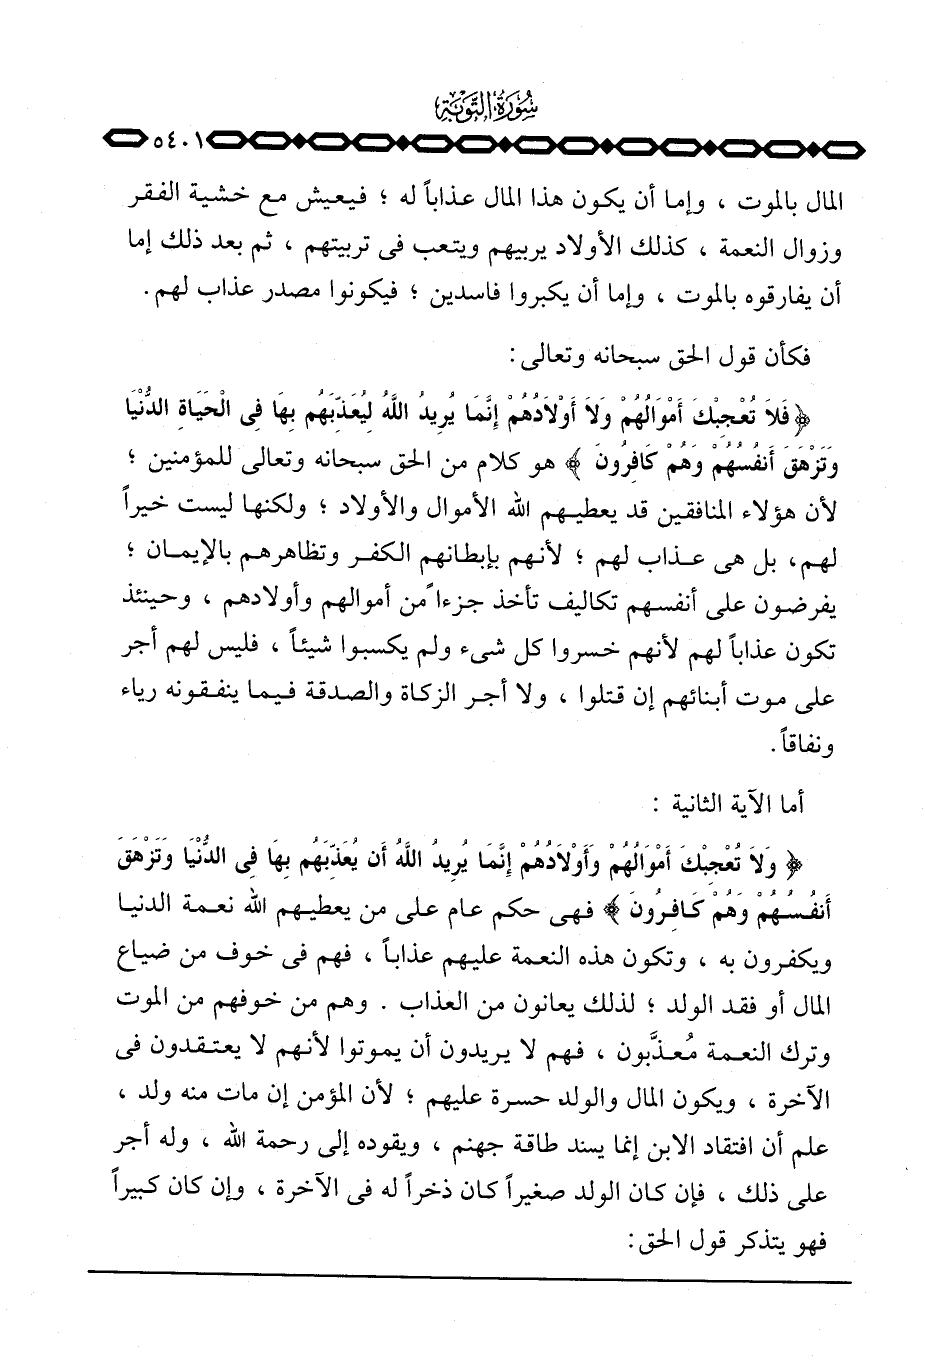 سُورَةُ التَّوْبَةِ
٥٤٠١
المال بالموت ، وإما أن يكون هذا المال عذاباً له ؛ فيعيش مع خشية الفقر
وزوال النعمة ، كذلك الأولاد يربيهم ويتعب فى تربيتهم ، ثم بعد ذلك إما
أن يفارقوه بالموت ، وإما أن يكبروا فاسدين ؛ فيكونوا مصدر عذاب لهم.
فكأن قول الحق سبحانه وتعالى:
﴿فَلاَ تُعْجِبْكَ أَمْوَالُهُمْ وَلاَ أَوْلاَدُهُمْ إِنَّمَا يُرِيدُ اللَّهُ لِيُعَذِّبَهُم بِهَا فِى الْحَيَاةِ الدُّنْيَا
وَتَزْهَقَ أَنفُسُهُمْ وَهُمْ كَافِرُونَ ﴾ هو كلام من الحق سبحانه وتعالى للمؤمنين ؛
لأن هؤلاء المنافقين قد يعطيهم الله الأموال والأولاد ؛ ولكنها ليست خيراً
لهم، بل هى عذاب لهم ؛ لأنهم بإبطانهم الكفر وتظاهرهم بالإيمان ؛
يفرضون على أنفسهم تكاليف تأخذ جزءاً من أموالهم وأولادهم ، وحينئذ
تكون عذاباً لهم لأنهم خسروا كل شىء ولم يكسبوا شيئاً ، فليس لهم أجر
على موت أبنائهم إن قتلوا ، ولا أجر الزكاة والصدقة فيما ينفقونه رياء
ونفاقاً.
أما الآية الثانية :
﴿ وَلاَ تُعْجِبْكَ أَمْوَالُهُمْ وَأَوْلاَدُهُمْ إِنَّمَا يُرِيدُ اللَّهُ أَن يُعَذِّبَهُم بِهَا فِى الدُّنْيَا وَتَزْهَقَ
أَنفُسُهُمْ وَهُمْ كَافِرُونَ ﴾ فهى حكم عام على من يعطيهم الله نعمة الدنيا
ويكفرون به ، وتكون هذه النعمة عليهم عذاباً ، فهم فى خوف من ضياع
المال أو فقد الولد ؛ لذلك يعانون من العذاب . وهم من خوفهم من الموت
وترك النعمة مُعذَّبون ، فهم لا يريدون أن يموتوا لأنهم لا يعتقدون فى
الآخرة ، ويكون المال والولد حسرة عليهم ؛ لأن المؤمن إن مات منه ولد ،
علم أن افتقاد الابن إنما يسند طاقة جهنم ، ويقوده إلى رحمة الله ، وله أجر
على ذلك ، فإن كان الولد صغيراً كان ذخراً له فى الآخرة ، وإن كان كبيراً
فهو يتذكر قول الحق: